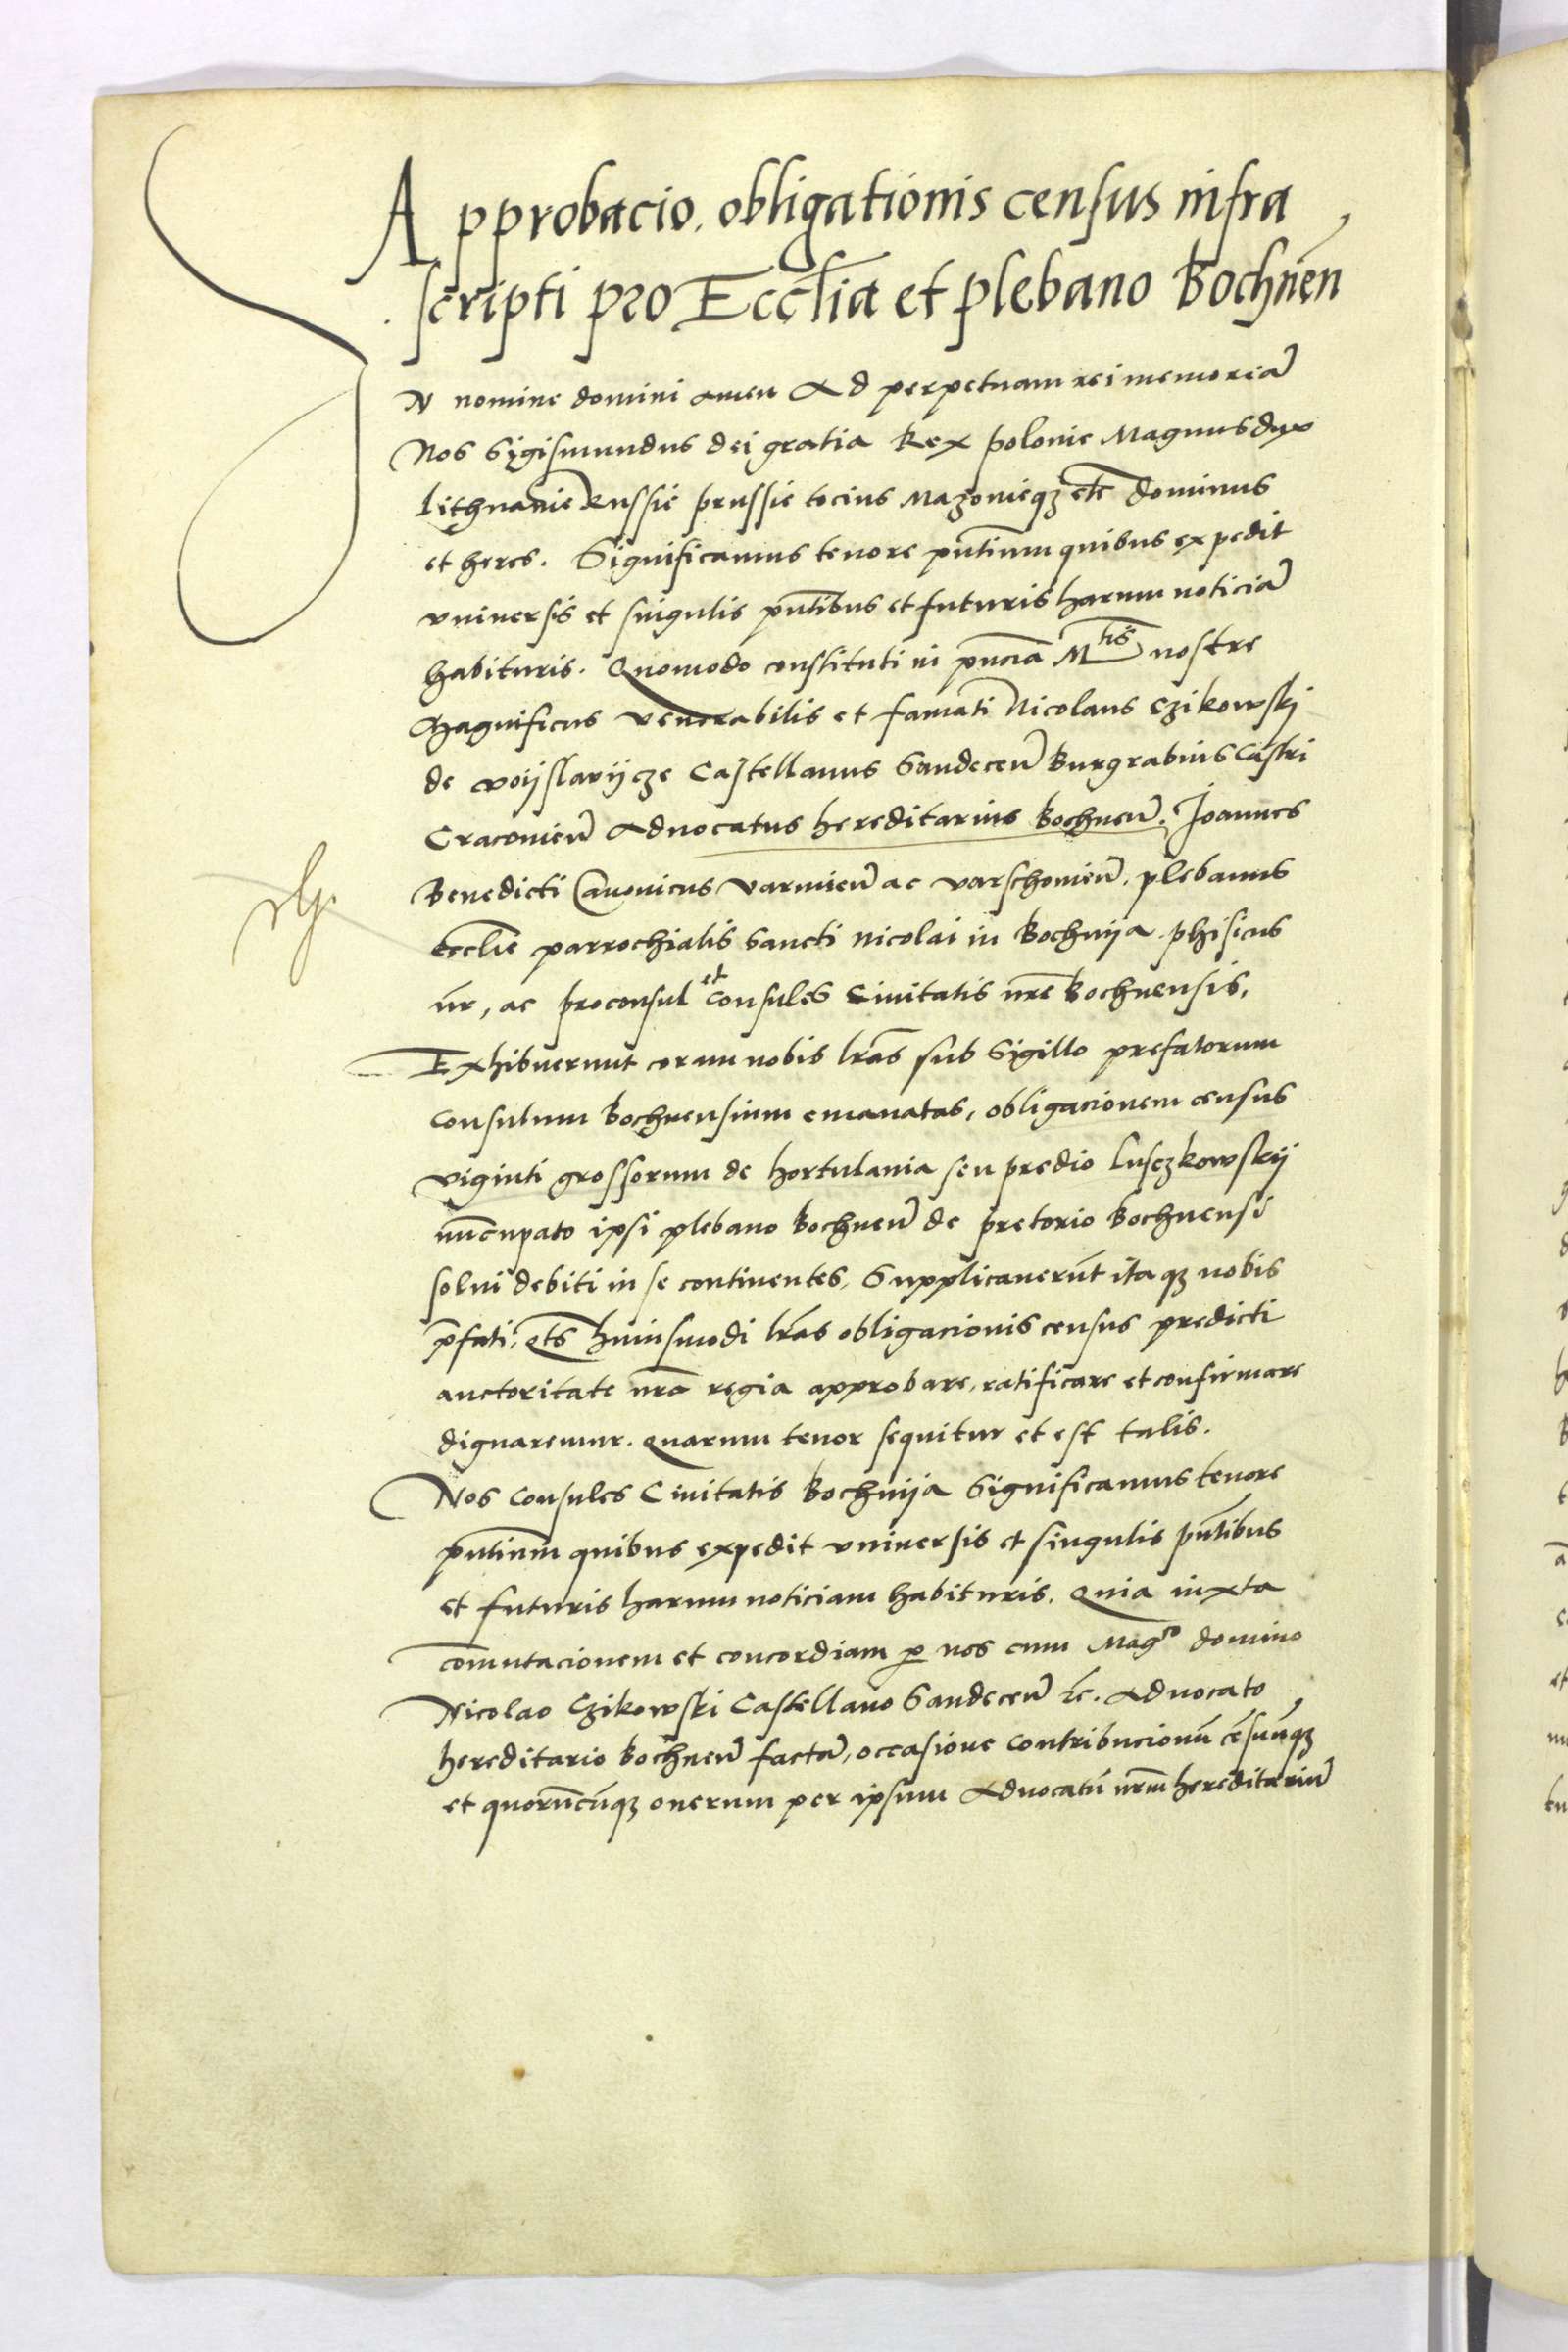 Approbacio. obligationis census infra
scripti pro Eccl̄ia et plebano Bochnēn
IN nomine domini amen Ad perpetuam rei memoriā
Nos Sigismundus dei gratia Rex polonie Magnus dux
Lithuanie Russie prussie tocius Mazovieqꝫ etc̄ dominus
et heres. Significamus tenore pn̄tium quibus expedit
vniuersis et singulis pn̄tibus et futuris harum noticiā
habituris. Quomodo constituti in pn̄cia M^tis nostre
Magnificus venerabilis et famati Nicolaus Czikowski
de voijslavijcze Castellanus Sandecen̄ Burgrabius Castri
Cracouien̄ Aduocatus hereditarius Bochnen̄. Joannes
Benedicti Canonicus varmien̄ ac varschouien̄. plebanus
eccl̄ie parrochialis Sancti Nicolai in Bochnija. phisicus
nr̄, ac proconsul et Consules Ciuitatis nr̄e Bochnensis,
Exhibuerunt coram nobis lr̄as sub Sigillo prefatorum
Consulum Bochnensium emanatas, obligacionem census
viginti grossorum de hortulania seu predio Lusczkowskij
nūcupato ipsi plebano Bochnen̄ de pretorio Bochnensi
solui debiti in se continentes, Supplicauerūt itaqꝫ nobis
p̄fati, qt̄s huiusmodi lr̄as obligacionis census predicti
auctoritate nr̄a regia approbare, ratificare et confirmare
dignaremur. quarum tenor sequitur et est talis.
Nos Consules Ciuitatis Bochnija Significamus tenore
pn̄tium quibus expedit vniuersis et singulis pn̄tibus
et futuris harum noticiam habituris. Quia iuxta
com̄utacionem et concordiam ꝑ nos cum Mag^co domino
Nicolao Czikowski Castellano Sandecen̄ ꝛc̄. Aduocato
hereditario Bochnen̄ factā, occasione contribucionū cēsuūqꝫ
et quorūcūqꝫ onerum per ipsum Aduocatū nr̄m hereditariū